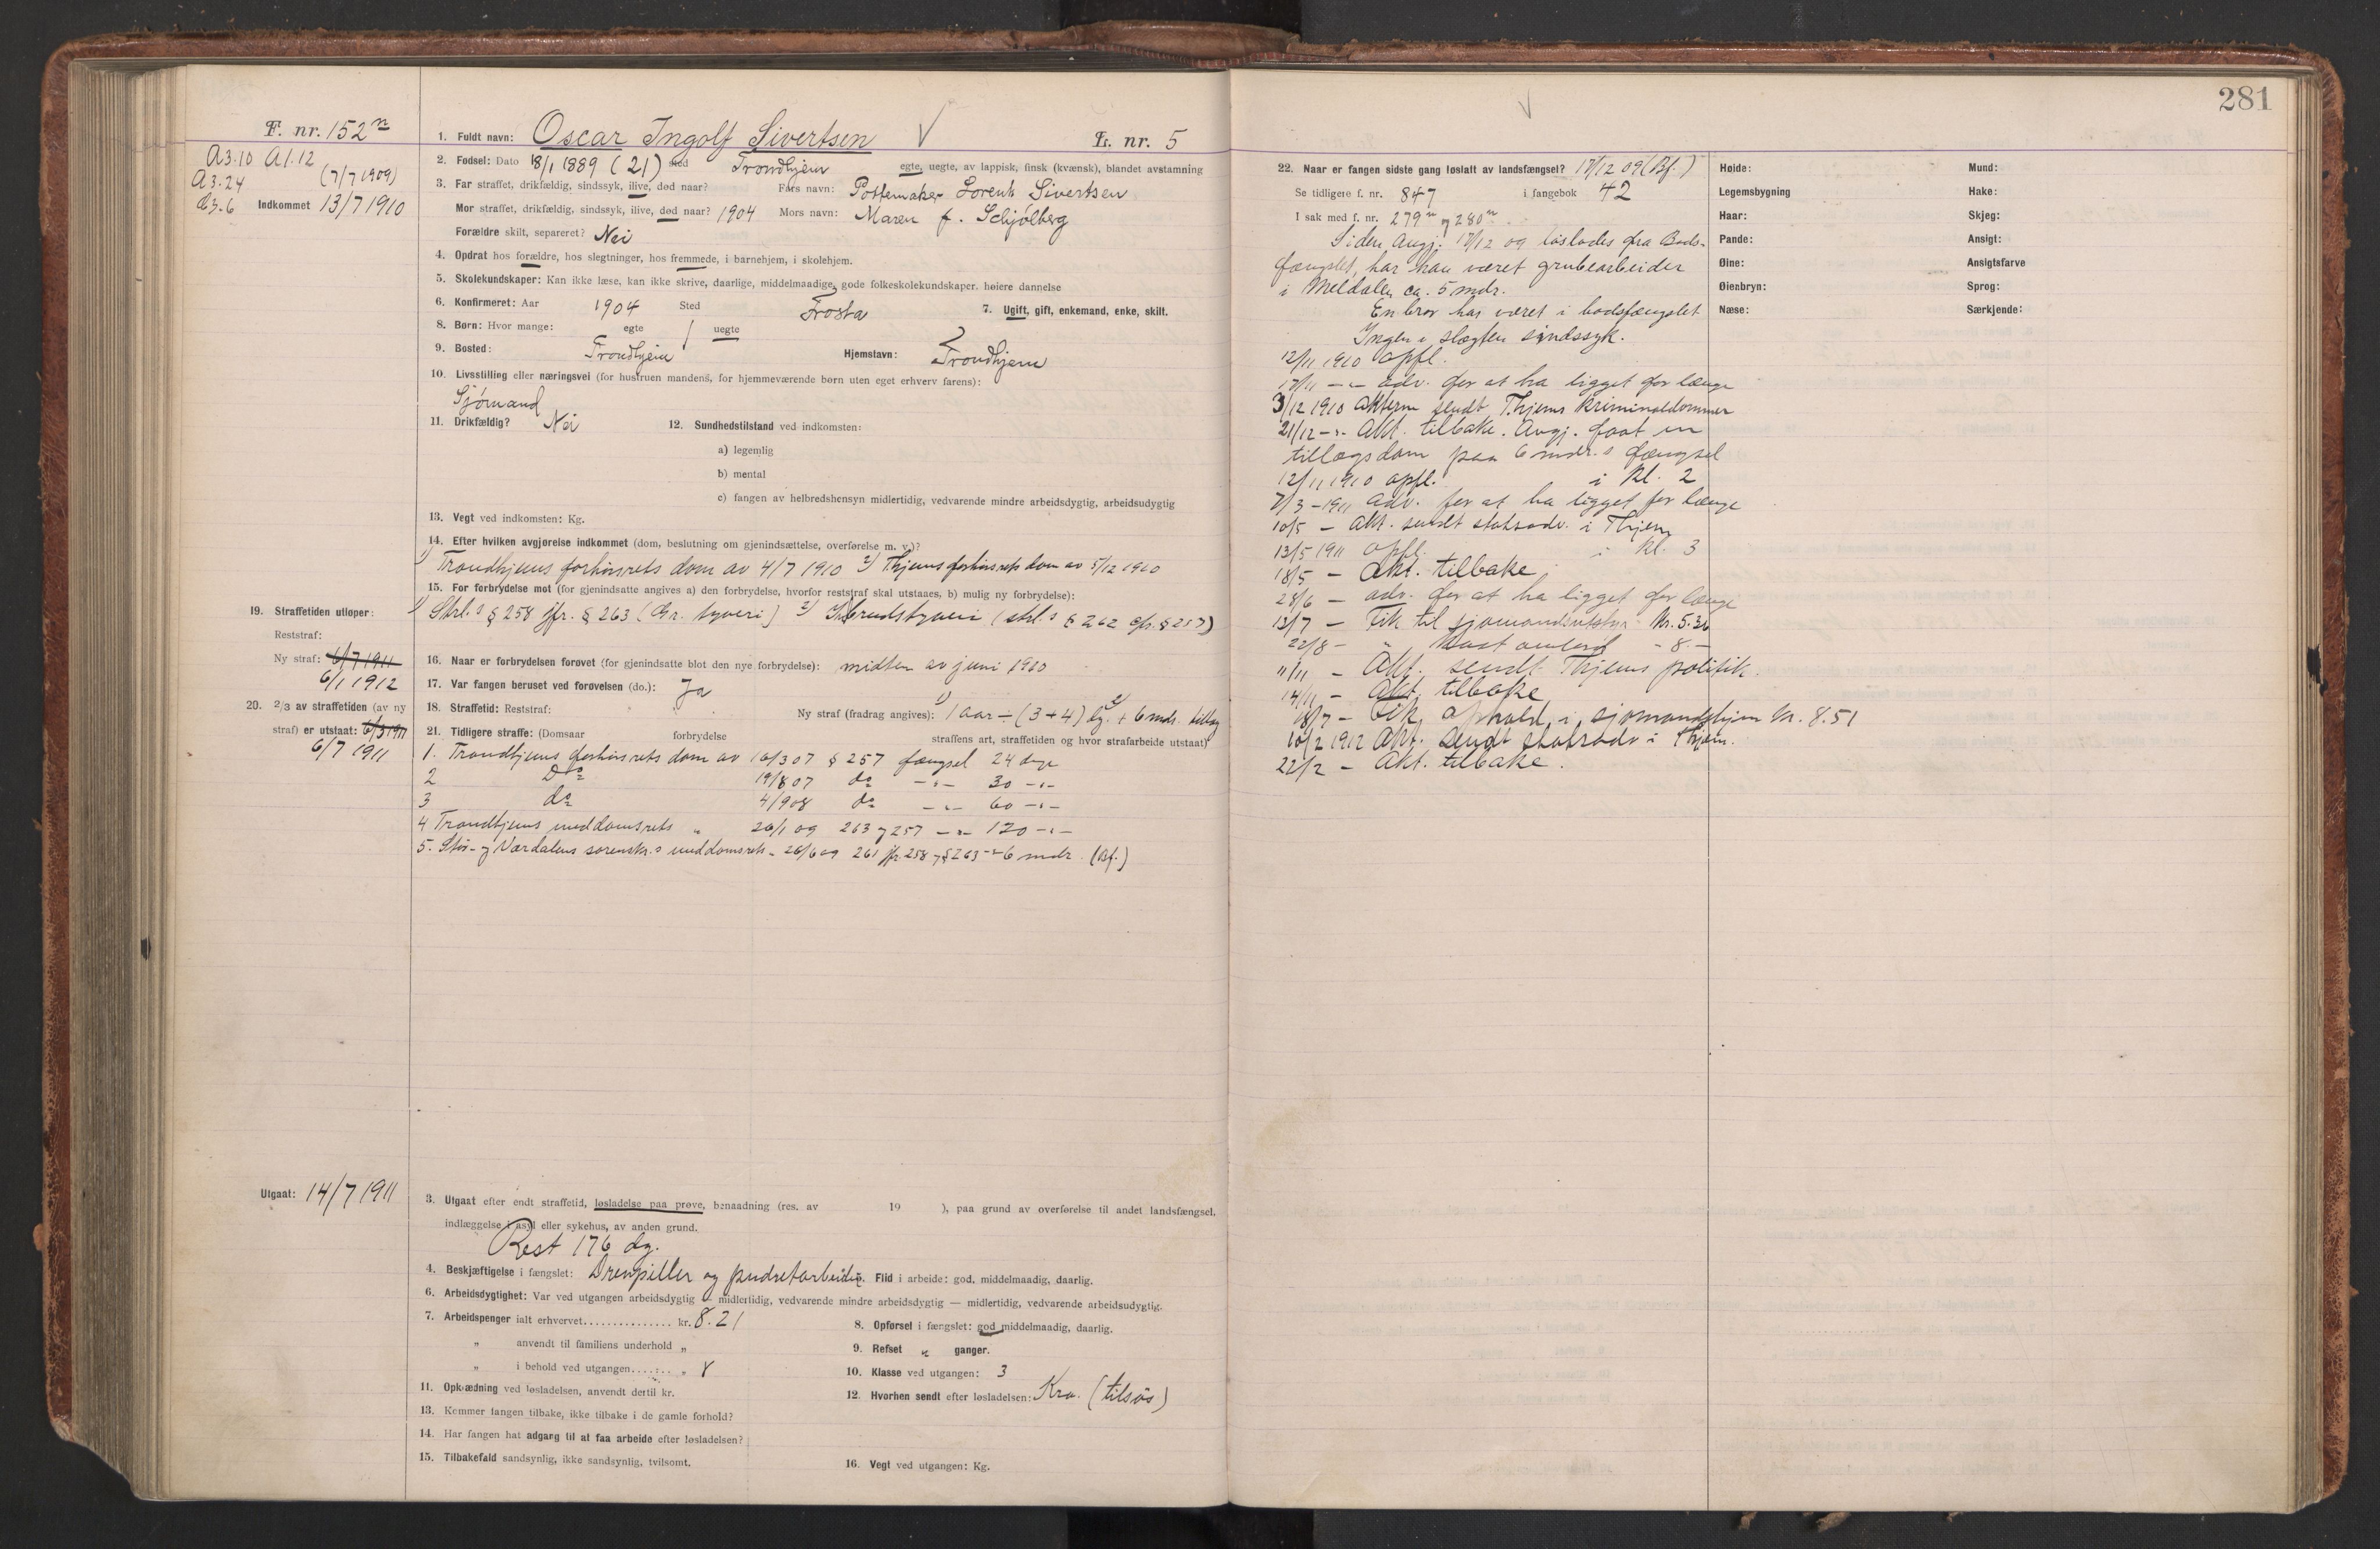 F. nr. 152 n
A 3.10 A 1.12
A 3.24 (7/7 1909)
Indkommet 13/7 1910
1. Fuldt navn: Oscar Ingolf Sivertsen V L. nr. 5
2. Fødsel: Dato 18/1 1889 (21) Sted Trondhjem egte, uegte, av lappisk, finsk (kvænsk), blandet avstamning
3. Far straffet, drikfældig, sindssyk, ilive, død naar? Fars navn: Pottemaker Lorents Sivertsen
Mor straffet, drikfældig, sindssyk, ilive, død naar? 1904 Mors navn: Maren f. Schjølberg
Forældre skilt, separeret? Nei
4. Opdrat hos forældre, hos slegtninger, hos fremmede, i barnehjem, i skolehjem.
5. Skolekundskaper: Kan ikke læse, kan ikke skrive, daarlige, middelmaadige, gode folkeskolekundskaper, høiere dannelse
6. Konfirmeret: Aar 1904 Sted Frosta 7. Ugift, gift, enkemand, enke, skilt.
8. Børn: Hvor mange: egte / uegte
9. Bosted: Trondhjem Hjemstavn: Trondhjem
10. Livsstilling eller næringsvei (for hustruen mandens, for hjemmeværende børn uten eget erhverv farens):
Sjømand
11. Drikfældig? Nei 12. Sundhedstilstand ved indkomsten:
a) legemlig
b) mental
c) fangen av helbredshensyn midlertidig, vedvarende mindre arbeidsdygtig, arbeidsudygtig
13. Vegt ved indkomsten: Kg.
14. Efter hvilken avgjørelse indkommet (dom, beslutning om gjenindsættelse, overførelse m. v.)?
1) Trondhjems forhørsrets dom av 4/7 1910 2) Thjems forhørsrets dom av 5/12 1910
15. For forbrydelse mot (for gjenindsatte angives a) den forbrydelse, hvorfor reststraf skal utstaaes, b) mulig ny forbrydelse):
1) Strl.s § 258 jfr. § 263 (Gr. tyveri) 2) Indbrudstyveri (strl.s § 262 cfr. § 257)
19. Straffetiden utløper:
Reststraf:
Ny straf: 6/7 1911
6/1 1912
16. Naar er forbrydelsen forøvet (for gjenindsatte blot den nye forbrydelse): midten av juni 1910
17. Var fangen beruset ved forøvelsen (do.): Ja
20. 2/3 av straffetiden (av ny
straf) er utstaat: 6/3 1911
6/7 1911
18. Straffetid: Reststraf: Ny straf (fradrag angives): 1) 1 aar ÷ (3+4) dg. 2) + 6 mdr. tillæg
21. Tidligere straffe: (Domsaar forbrydelse straffens art, straffetiden og hvor strafarbeide utstaat)
1. Trondhjems forhørsrets dom av 16/3 07 § 257 fængsel 24 dage
2 Do 19/8 07 do -"- 30 -"-
3 do 4/9 08 do -"- 60 -"-
4 Trondhjems meddomsrets " 26/1 09 263 og 257 -"- 120 -"-
5. Stør- og Værdalens sorenskr.s meddomsrets - 26/6 09 261 jfr. 258 og § 263 -"- 6 mdr. (Bf.)
Utgaat: 14/7 1911
3. Utgaat efter endt straffetid, løsladelse paa prøve, benaadning (res. av 19 ), paa grund av overførelse til andet landsfængsel,
indlæggelse i asyl eller sykehus, av anden grund.
Rest 176 dg.
4. Beskjæftigelse i fængslet: Drevpiller og pudretarbeide. Flid i arbeide: god, middelmaadig, daarlig.
6. Arbeidsdygtighet: Var ved utgangen arbeidsdygtig — midlertidig, vedvarende mindre arbeidsdygtig — midlertidig, vedvarende arbeidsudygtig.
7. Arbeidspenger ialt erhvervet............... kr. 8.21 8. Opførsel i fængslet: god, middelmaadig, daarlig.
„ anvendt til familiens underhold „ 9. Refset " ganger.
„ i behold ved utgangen....... „ 8 10. Klasse ved utgangen: 3
11. Opklædning ved løsladelsen, anvendt dertil kr. 12. Hvorhen sendt efter løsladelsen: Kra. (tilsøs)
13. Kommer fangen tilbake, ikke tilbake i de gamle forhold?
14. Har fangen hat adgang til at faa arbeide efter løsladelsen?
15. Tilbakefald sandsynlig, ikke sandsynlig, tvilsomt. 16. Vegt ved utgangen: Kg.
V
281
22. Naar er fangen sidste gang løslatt av landsfængsel? 17/12 09 (Bf.)
Se tidligere f. nr. 847 i fangebok 42
I sak med f. nr. 279 n og 280 n
Siden Angj. 17/12 09 løslodes fra Bods-
fængslet, har han været grubearbeider
i Meldalen ca. 5 mdr.
En bror har været i bodsfængslet
Ingen i slegten sindssyk.
12/11 1910 opfl.
17/11 -"- adv. for at ha ligget for længe
3/12 1910 Akterne sendt Thjems kriminaldommer
21/12 -"- Akt. tilbake. Angj. faat en
tillægsdom paa 6 mdr.s fængsel
12/11 1910 opfl. i kl. 2
7/3 - 1911 adv. for at ha ligget for længe
10/5 - Akt. sendt statsadv. i Thjem
13/5 1911 opfl. i kl. 3
18/5 - Akt. tilbake.
28/6 - adv. for at ha ligget for længe
13/7 - Fik til sjømandsutstyr Kr. 5.30
22/8 - " - 8.-
11/11 - Akt. sendt Thjems politik.
14/11 - Akt. tilbake
18/7 - Fik ophold i sjømandshjem Kr. 8.51
10/2 1912 Akt. sendt statsadv i Thjem.
22/2 - Akt. tilbake.
Høide:
Legemsbygning
Haar:
Pande:
Øine:
Øienbryn:
Næse:
Mund:
Hake:
Skjeg:
Ansigt:
Ansigtsfarve
Sprog:
Særkjende: